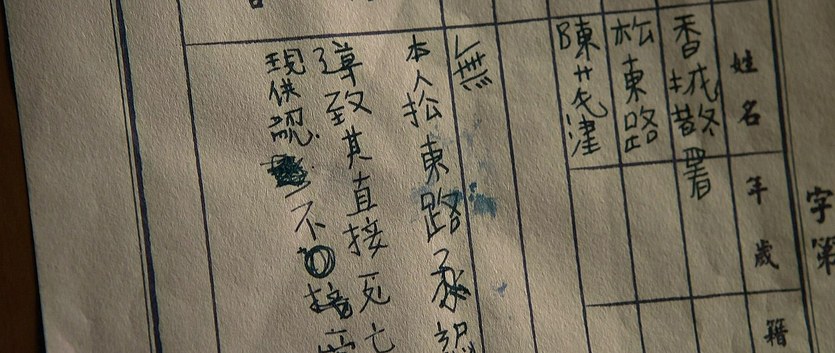 字第
姓名 年歲 籍
香城警署
松東路
陳茂津
無
本人松東路承認
導致其直接死亡
現供認 不